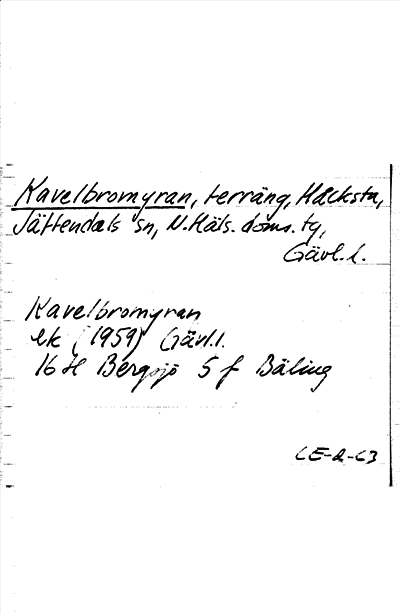 Kavelbromyran, terräng, Häcksta,
Jättendals sn, N.Häls. doms. tg,
Gävl. l.
Kavelbromyran
ek (1959) Gävl.l.
16 H Bergsjö 5 f Bäling